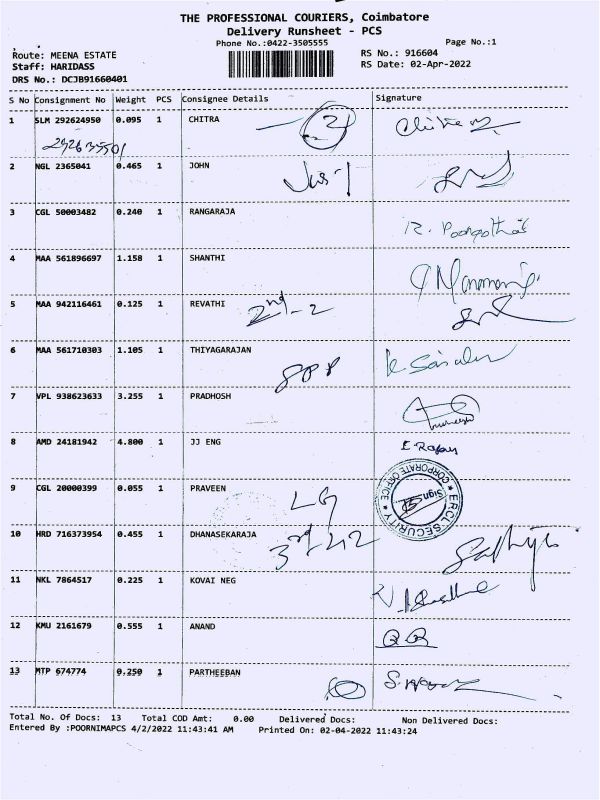 THE PROFESSIONAL COURIERS, Coimbatore
Delivery Runsheet - PCS
Phone No.:0422-3505555
Page No.:1
Route: MEENA ESTATE
RS No.: 916604
Staff: HARIDASS
RS Date: 02-Apr-2022
DRS No.: DCJB91660401
S No Consignment No Weight PCS Consignee Details Signature
1 SLM 292624950 0.095 1 CHITRA 21
2 NGL 2365041 0.465 1 JOHN
3 CGL 50003482 0.240 1 RANGARAJA
4 MAA 561896697 1.158 1 SHANTHI
5 MAA 942116461 0.125 1 REVATHI 2nd-2
6 MAA 561710303 1.105 1 THIYAGARAJAN
7 VPL 938623633 3.255 1 PRADHOSH
8 AMD 24181942 4.800 1 JJ ENG
ERCL SECURITY CORPORATE OFFICE Sign
9 CGL 20000399 0.055 1 PRAVEEN
10 HRD 716373954 0.455 1 DHANASEKARAJA
11 NKL 7864517 0.225 1 KOVAI NEG
12 KMU 2161679 0.555 1 ANAND
13 MTP 674774 0.250 1 PARTHEEBAN
Total No. Of Docs: 13 Total COD Amt: 0.00 Delivered Docs: Non Delivered Docs:
Entered By :POORNIMAPCS 4/2/2022 11:43:41 AM Printed On: 02-04-2022 11:43:24